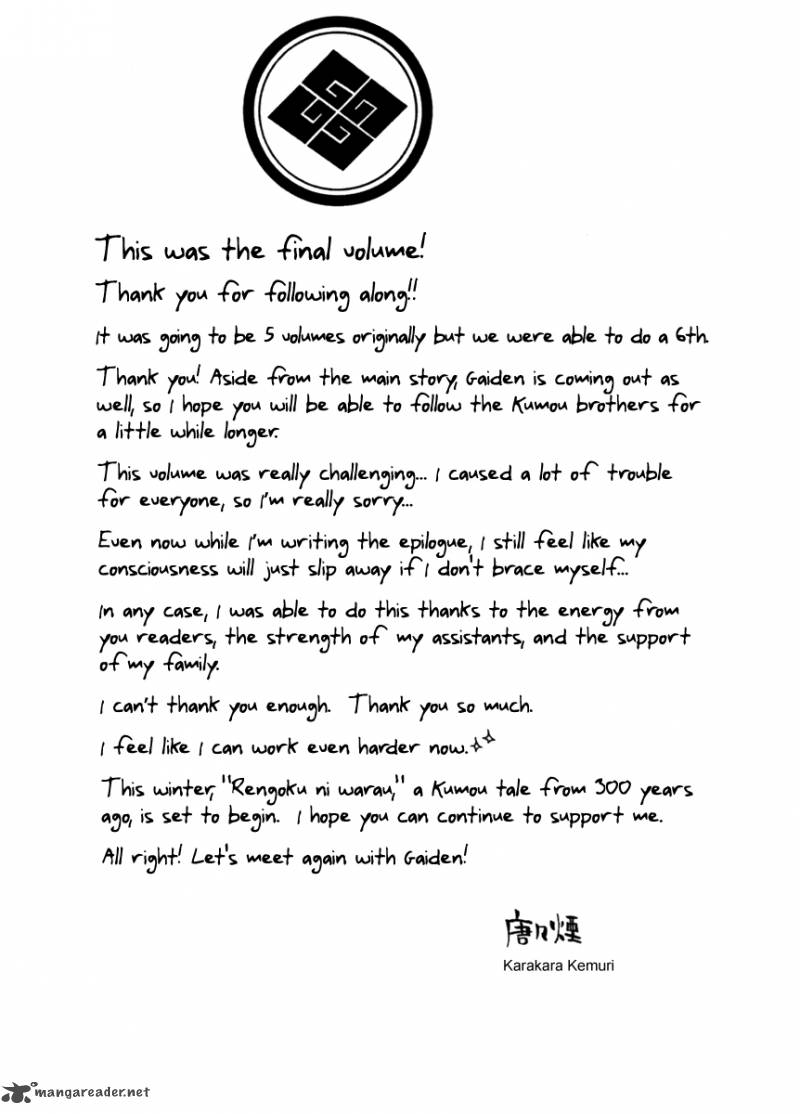 This was the final volume!
Thank you for following along!!
It was going to be 5 volumes originally but we were able to do a 6th.
Thank you! Aside from the main story, Gaiden is coming out as
well, so I hope you will be able to follow the Kumou brothers for
a little while longer.
This volume was really challenging... I caused a lot of trouble
for everyone, so I'm really sorry...
Even now while I'm writing the epilogue, I still feel like my
consciousness will just slip away if I don't brace myself...
In any case, I was able to do this thanks to the energy from
you readers, the strength of my assistants, and the support
of my family.
I can't thank you enough. Thank you so much.
I feel like I can work even harder now.
This winter, "Rengoku ni warau," a Kumou tale from 300 years
ago, is set to begin. I hope you can continue to support me.
All right! Let's meet again with Gaiden!
唐々煙
Karakara Kemuri
mangareader.net